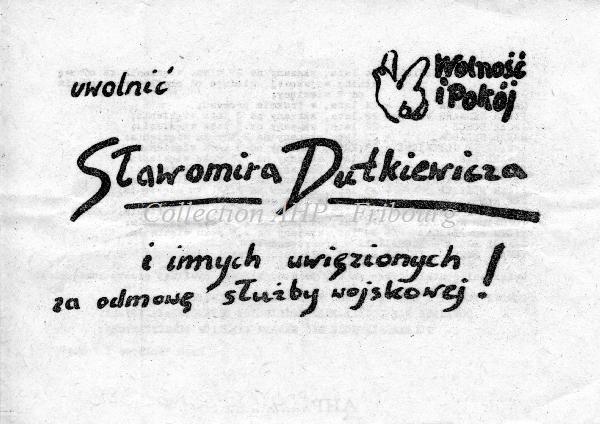 uwolnić
Wolność
i Pokój
Sławomira Dutkiewicza
Collection AHP - Fribourg
i innych uwięzionych
za odmowę służby wojskowej!